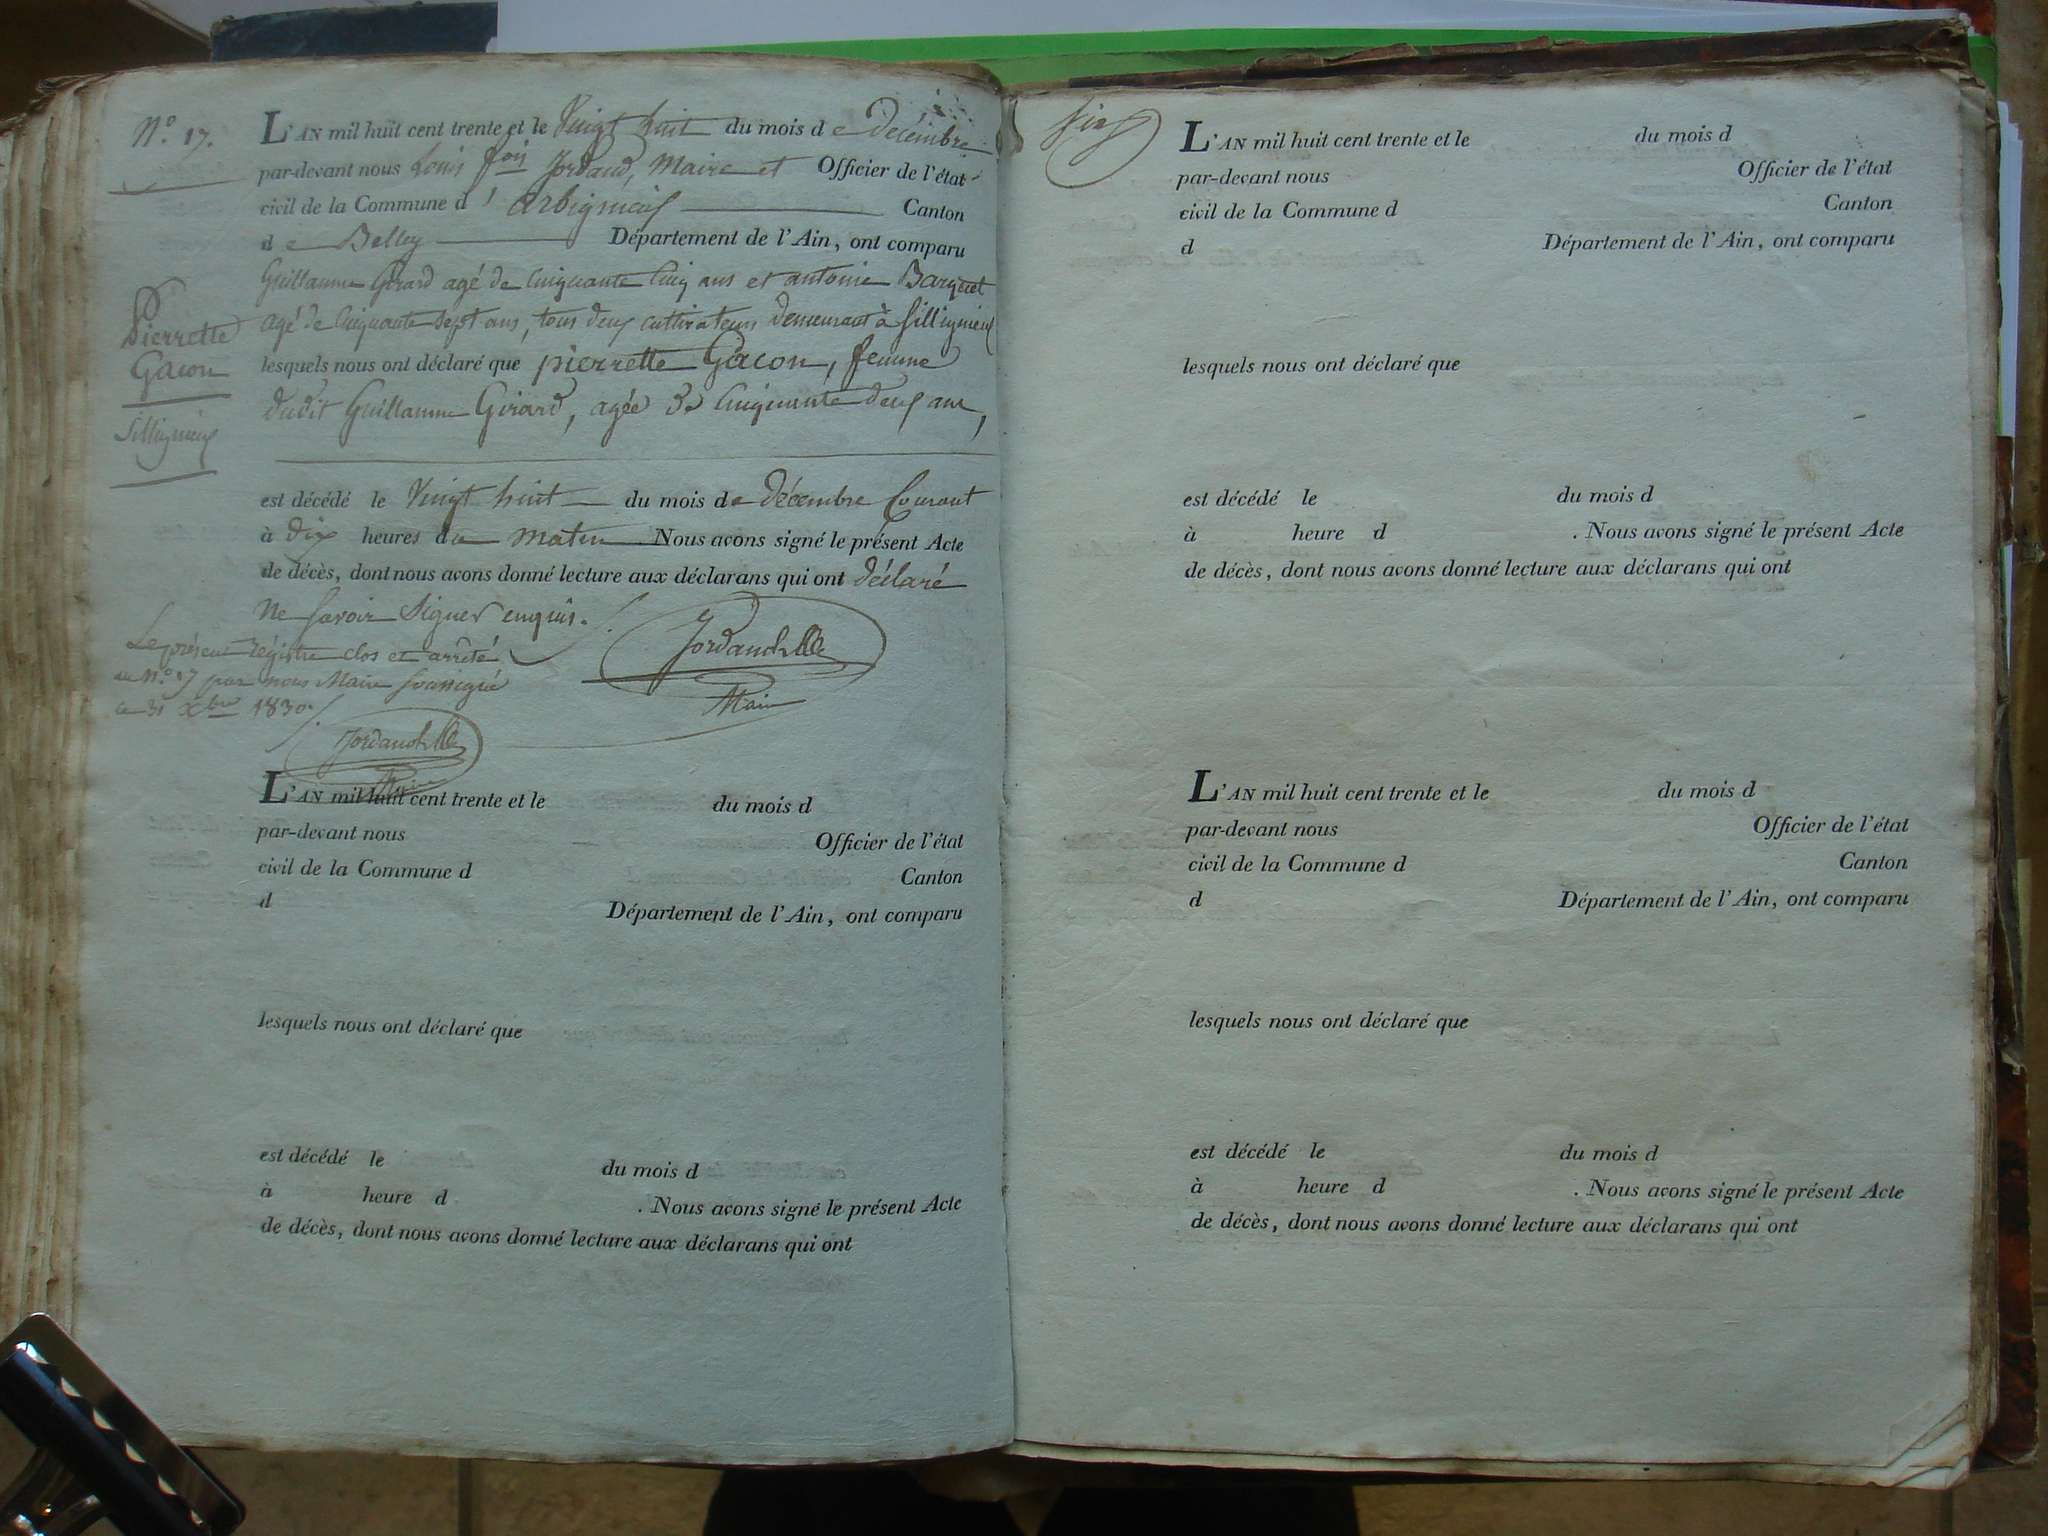 N.° 17.
L'AN mil huit cent trente et le Vingt huit du mois de décembre
par-devant nous Louis f.ois Jordand, Maire et Officier de l'état
civil de la Commune d'Arbignieu Canton
de Belley Département de l'Ain, ont comparu
Guillaume Girard agé de Cinquante Cinq ans et antoine Barquet
agé de Cinquante Sept ans, tous deux cultivateurs demeurant à Sillignieu
Pierrette
Gacon
Sillignieu
lesquels nous ont déclaré que pierrette Gacon, femme
dudit Guillaume Girard, agée de Cinquante deux ans,
est décédé le Vingt huit du mois de décembre Courant
à dix heures du matin Nous avons signé le présent Acte
de décès, dont nous avons donné lecture aux déclarans qui ont déclaré
Ne Savoir Signer enquis.
Maire
Le présent Régistre clos et arrêté
au N.° 17 par nous Maire Soussigné
ce 31 Xbre 1830.
Maire
L'AN mil huit cent trente et le du mois d
par-devant nous Officier de l'état
civil de la Commune d Canton
d Département de l'Ain, ont comparu
lesquels nous ont déclaré que
est décédé le du mois d
à heure d . Nous avons signé le présent Acte
de décès, dont nous avons donné lecture aux déclarans qui ont
L'AN mil huit cent trente et le du mois d
par-devant nous Officier de l'état
civil de la Commune d Canton
d Département de l'Ain, ont comparu
lesquels nous ont déclaré que
est décédé le du mois d
à heure d . Nous avons signé le présent Acte
de décès, dont nous avons donné lecture aux déclarans qui ont
L'AN mil huit cent trente et le du mois d
par-devant nous Officier de l'état
civil de la Commune d Canton
d Département de l'Ain, ont comparu
lesquels nous ont déclaré que
est décédé le du mois d
à heure d . Nous avons signé le présent Acte
de décès, dont nous avons donné lecture aux déclarans qui ont